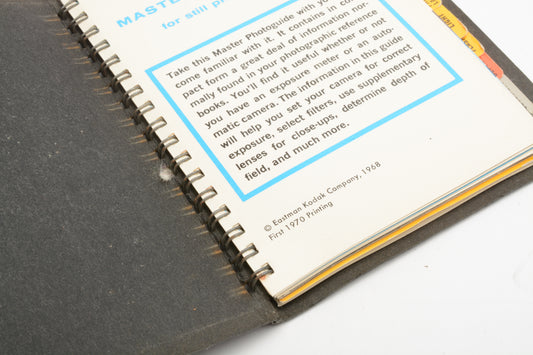 MASTER
for still p
Take this Master Photoguide with yo
come familiar with it. It contains in com
pact form a great deal of information nor-
mally found in your photographic reference
books. You'll find it useful whether or not
you have an exposure meter or an auto-
matic camera. The information in this guide
will help you set your camera for correct
exposure, select filters, use supplementary
lenses for close-ups, determine depth of
field, and much more.
© Eastman Kodak Company, 1968
First 1970 Printing